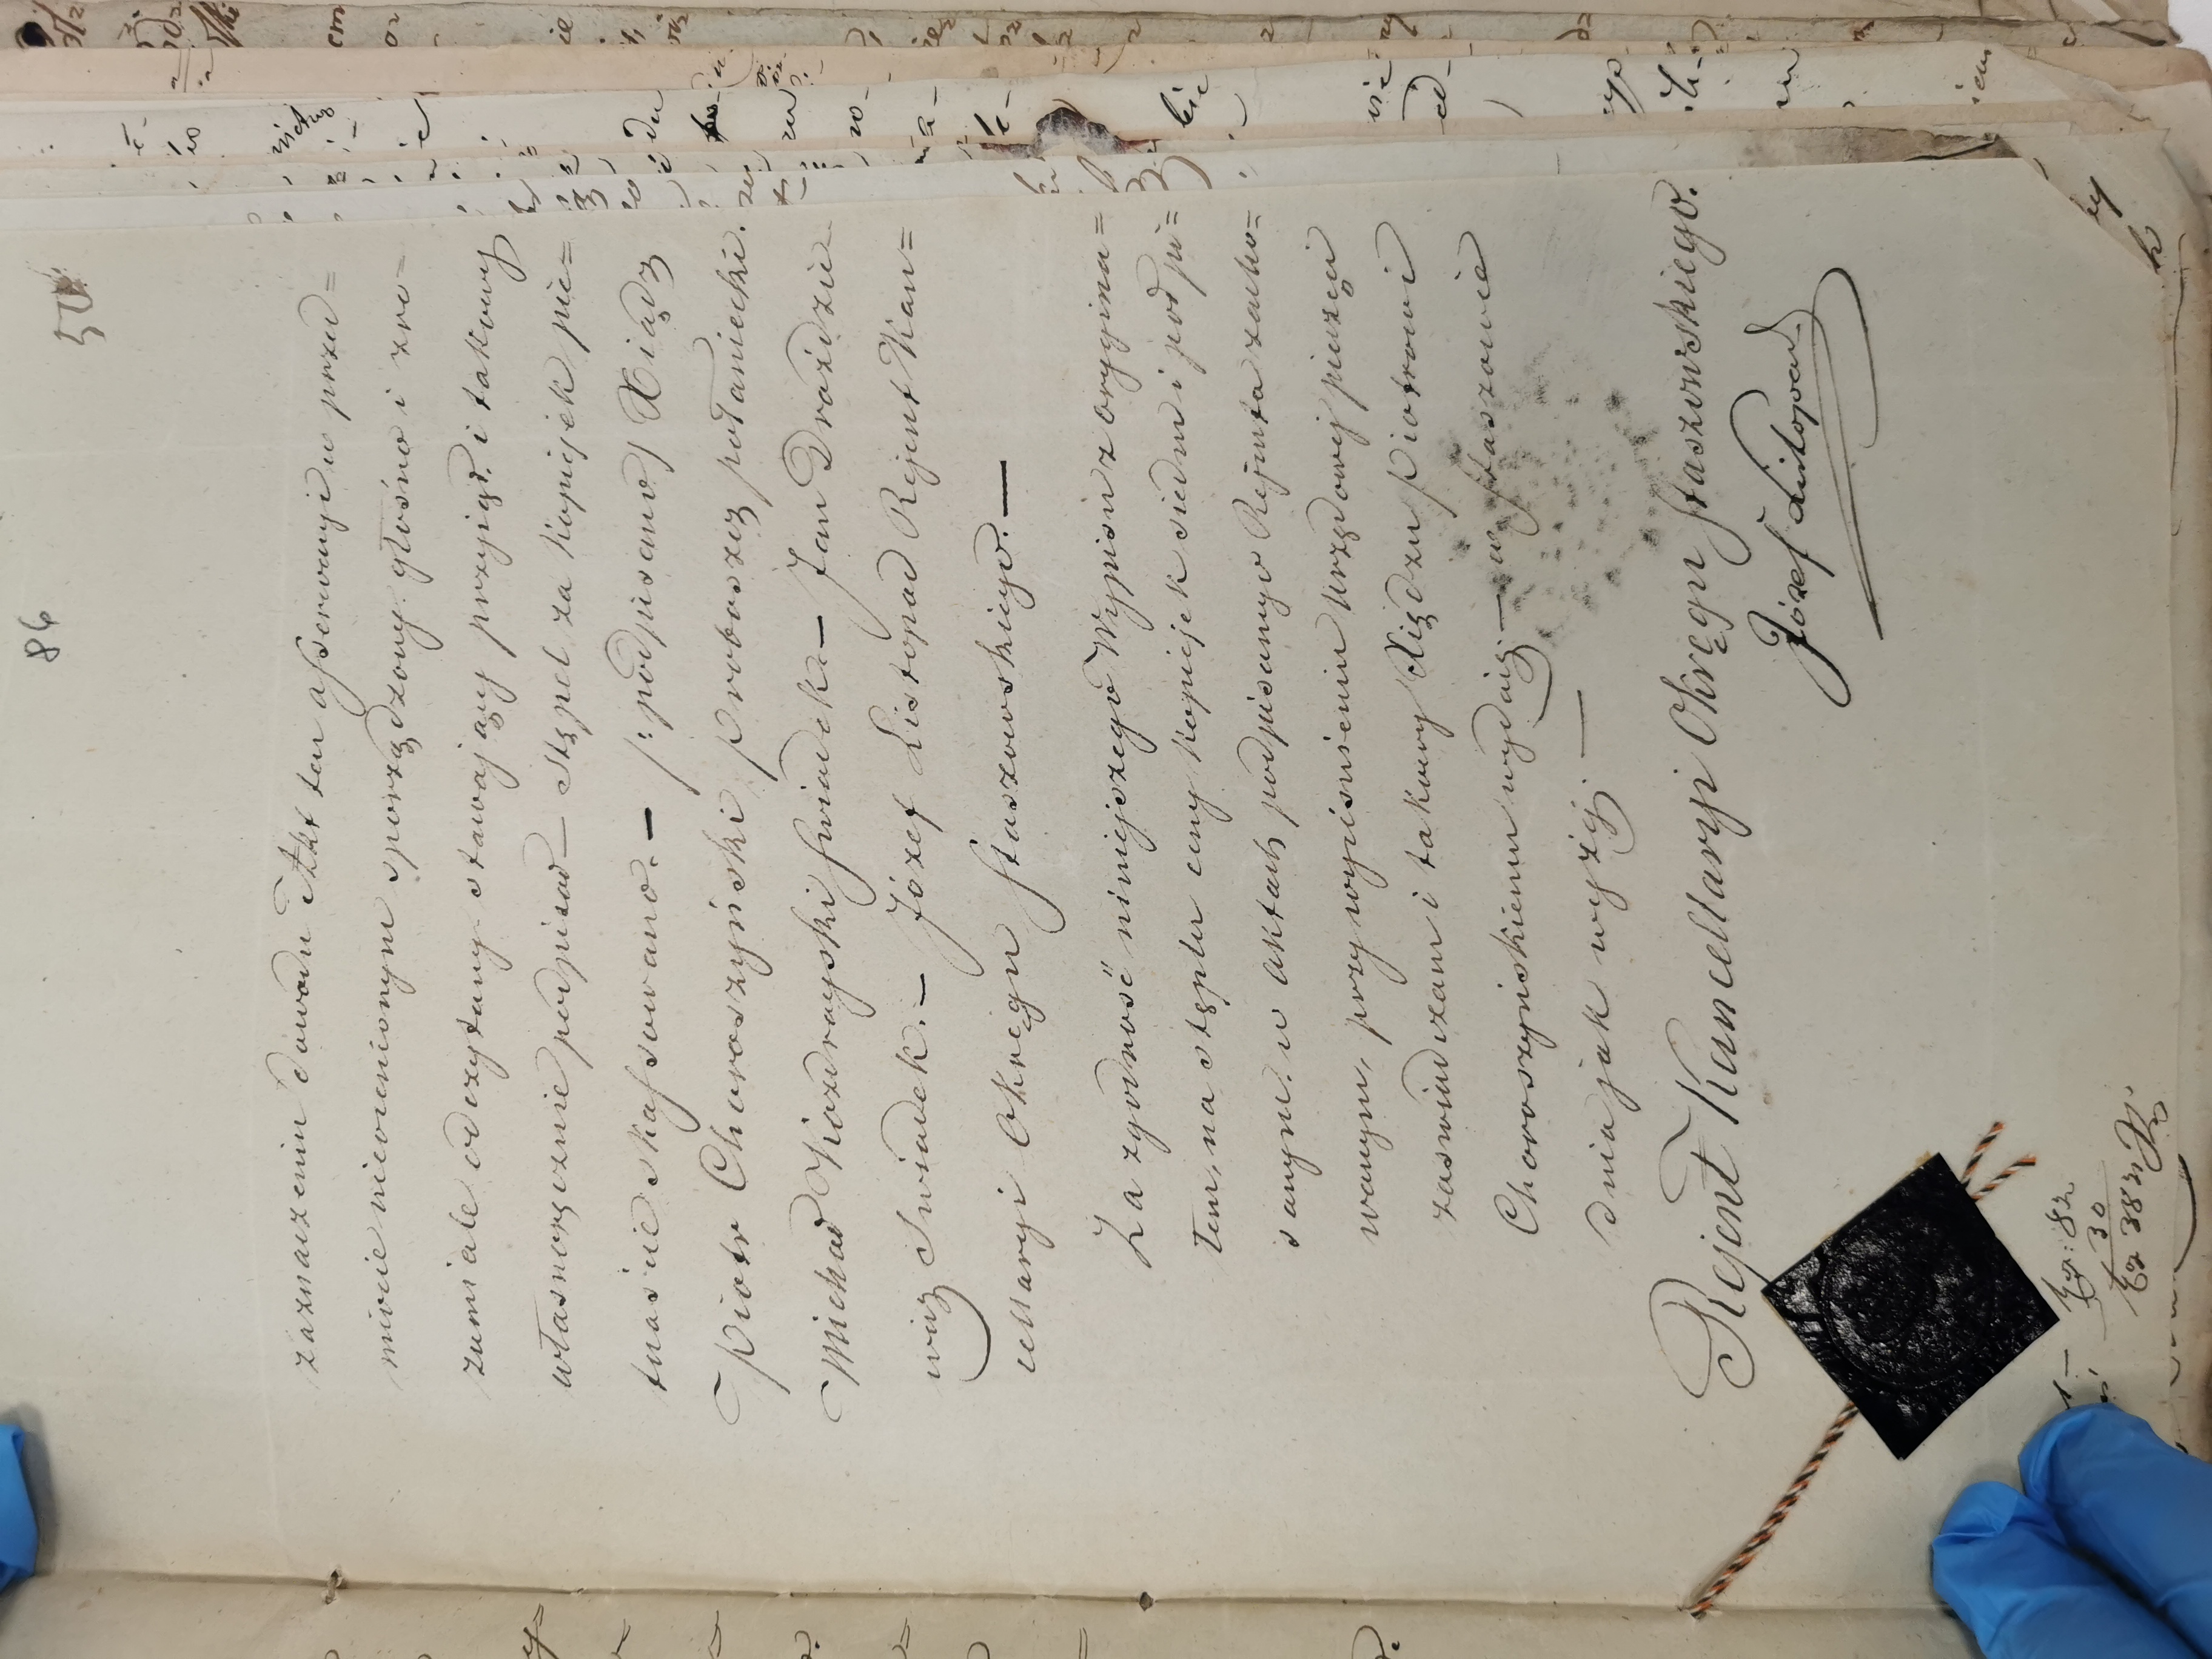 86
50
zaznaczeniu dowodu Akt ten asserwuje w przed=
miocie nieocenionym sporządzony głośno i zro=
zumiale odczytany stawający przyjął i takowy
własnoręcznie podpisał — Stępel za kopiejek pię=
tnaście skassowano. — /: podpisano / Xiądz
Piotr Choroszyński Proboszcz połaniecki.
Michał Kozdrayski świadek — Jan Drozdzie
wicz Świadek. — Józef Listopad Rejent Kan=
cellaryi Okręgu Staszowskiego. —
Za zgodność niniejszego Wypisu z orygina=
łem, na stęplu ceny kopiejek siedm i pół pi=
sanym w aktach podpisanego Rejenta zacho=
wanym, przy wyciśnieniu urzędowej pieczęci
zaświadczam i takowy Xiędzu Piotrowi
Choroszyńskiemu wydaię — w Staszowie
dnia jak wyżej. —
Rejent Kancellaryi Okręgu Staszowskiego.
Józef Listopad
82
30
38 2